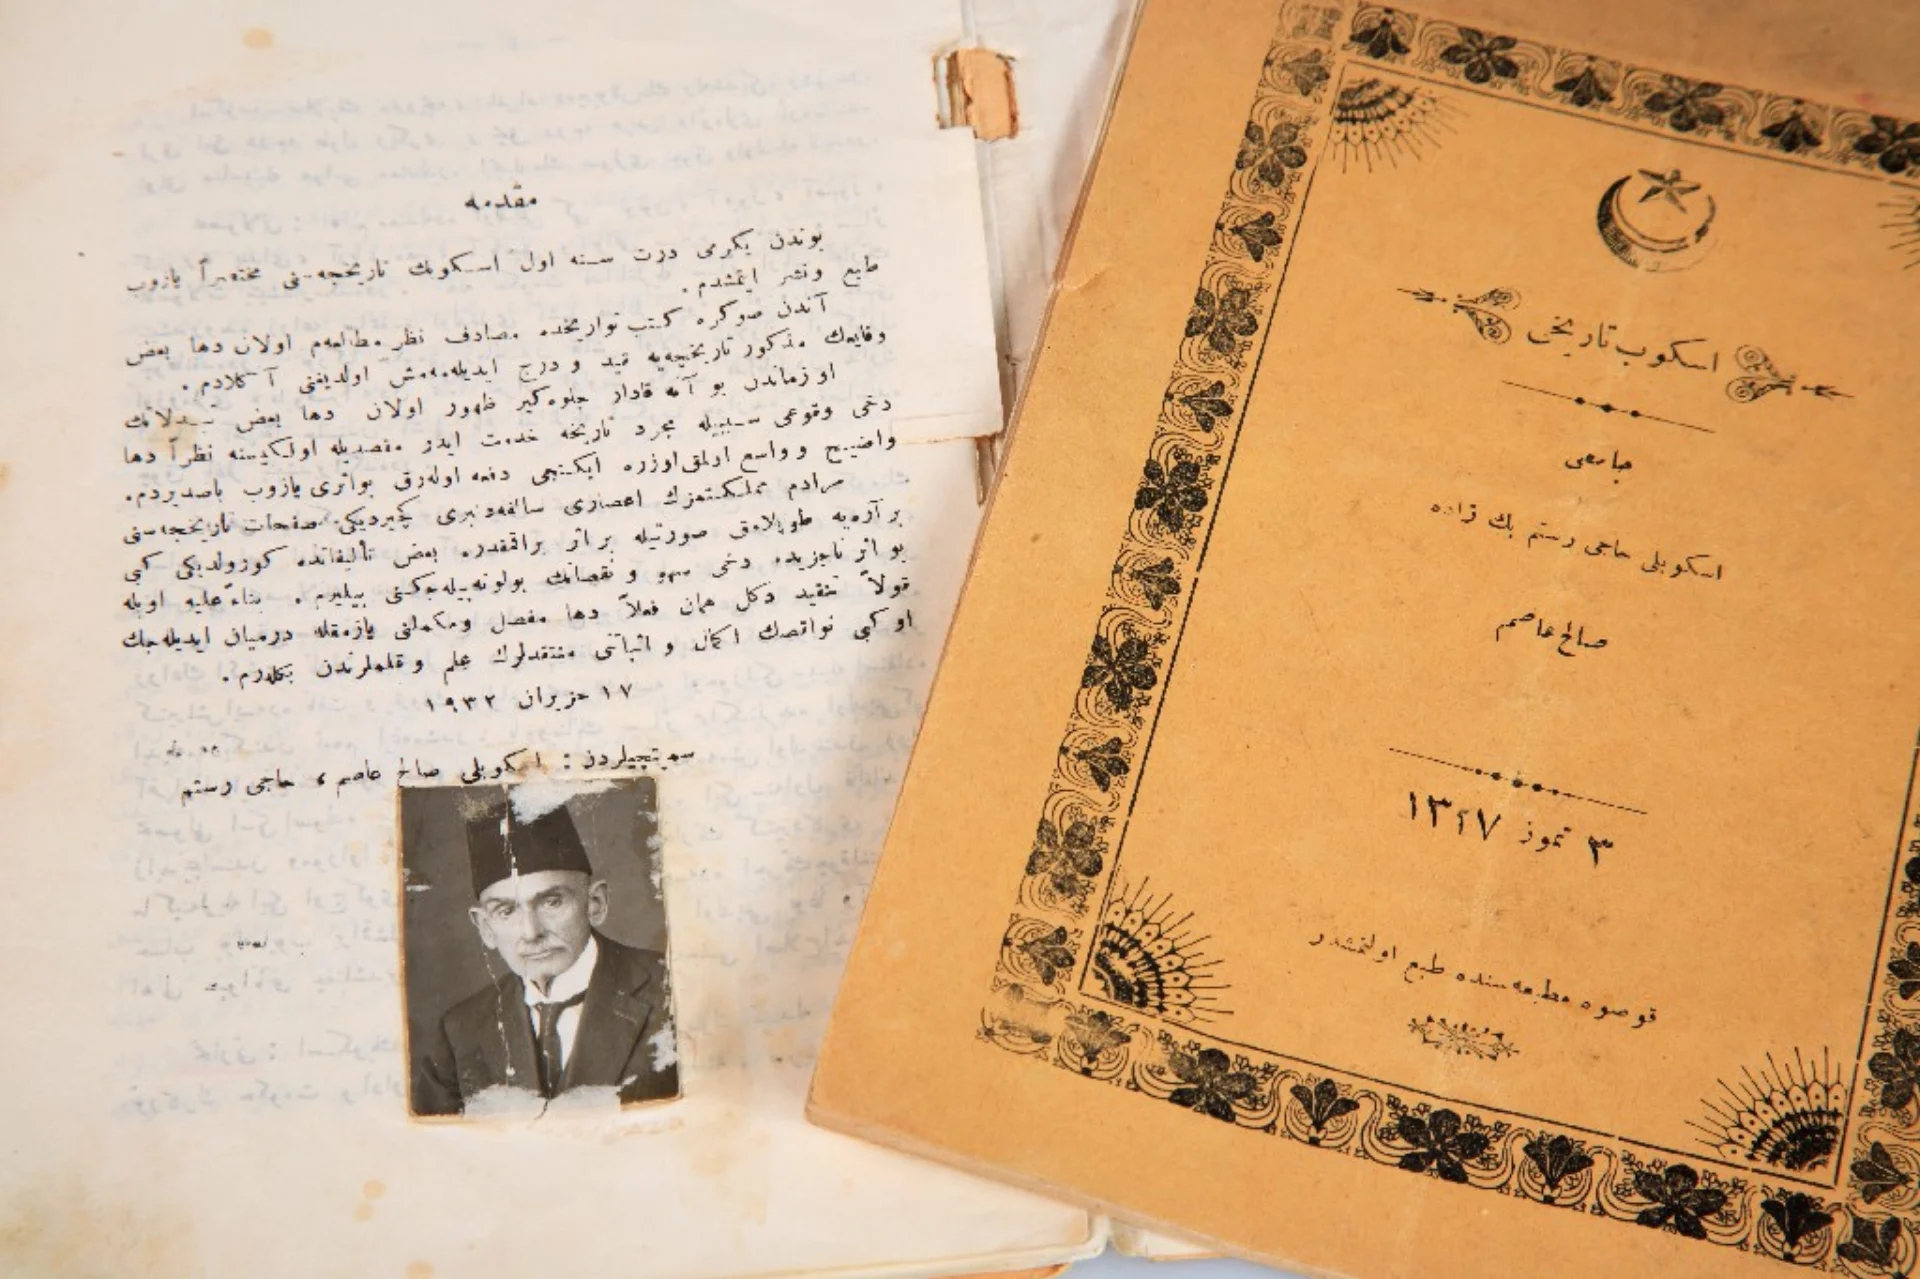 مقدمه
بوندن يكرمى درت سنه اول اسكوبك تاريخچه‌سنى مختصراً يازوب
طبع ونشر ايتمشدم .
آندن صوكره كتب تواريخده مصادف نظر مطالعه‌م اولان دها بعض
وقايعك مذكور تاريخچه‌يه قيد و درج ايديله‌مه‌مش اولديغنى آكلادم .
او زماندن بو آنه قادار جلوه‌كير ظهور اولان دها بعض تبدلاتك
دخى وقوعى سببيله مجرد تاريخه خدمت ايدر مقصديله اولكيسنه نظراً دها
واضيح و واسع اولمق اوزره ايكنجى دفعه اوله‌رق بو اثرى يازوب باصديردم .
مرادم مملكتمزك اعصارى سالفه‌دنبرى كچيرديكى صفحات تاريخچه‌سنى
بر آره‌يه طوپلامق صورتيله بر اثر براقمقدر. بعض تأليفاتده كورولديكى كبى
بو اثر ناچزيده دخى سهو و نقصانك بولونه‌بيله‌جكنى بيليرم . بناءً عليه اويله
قولاً تنقيد دكل همان فعلاً دها مفصل ومكملنى يازمقله درميان ايديله‌جك
او كبى نواقصك اكمال و اثباتنى منتقدلرك علم و قلملرندن بكلرم .
١٧ حزيران ١٩٣٢
اسكوبلى صالح عاصم ، حاجى رستم
اسكوب تاريخى
جامعى
اسكوبلى حاجى رستم بك زاده
صالح عاصم
٣ تموز ١٣٢٧
قوصوه مطبعه‌سنده طبع اولنمشدر